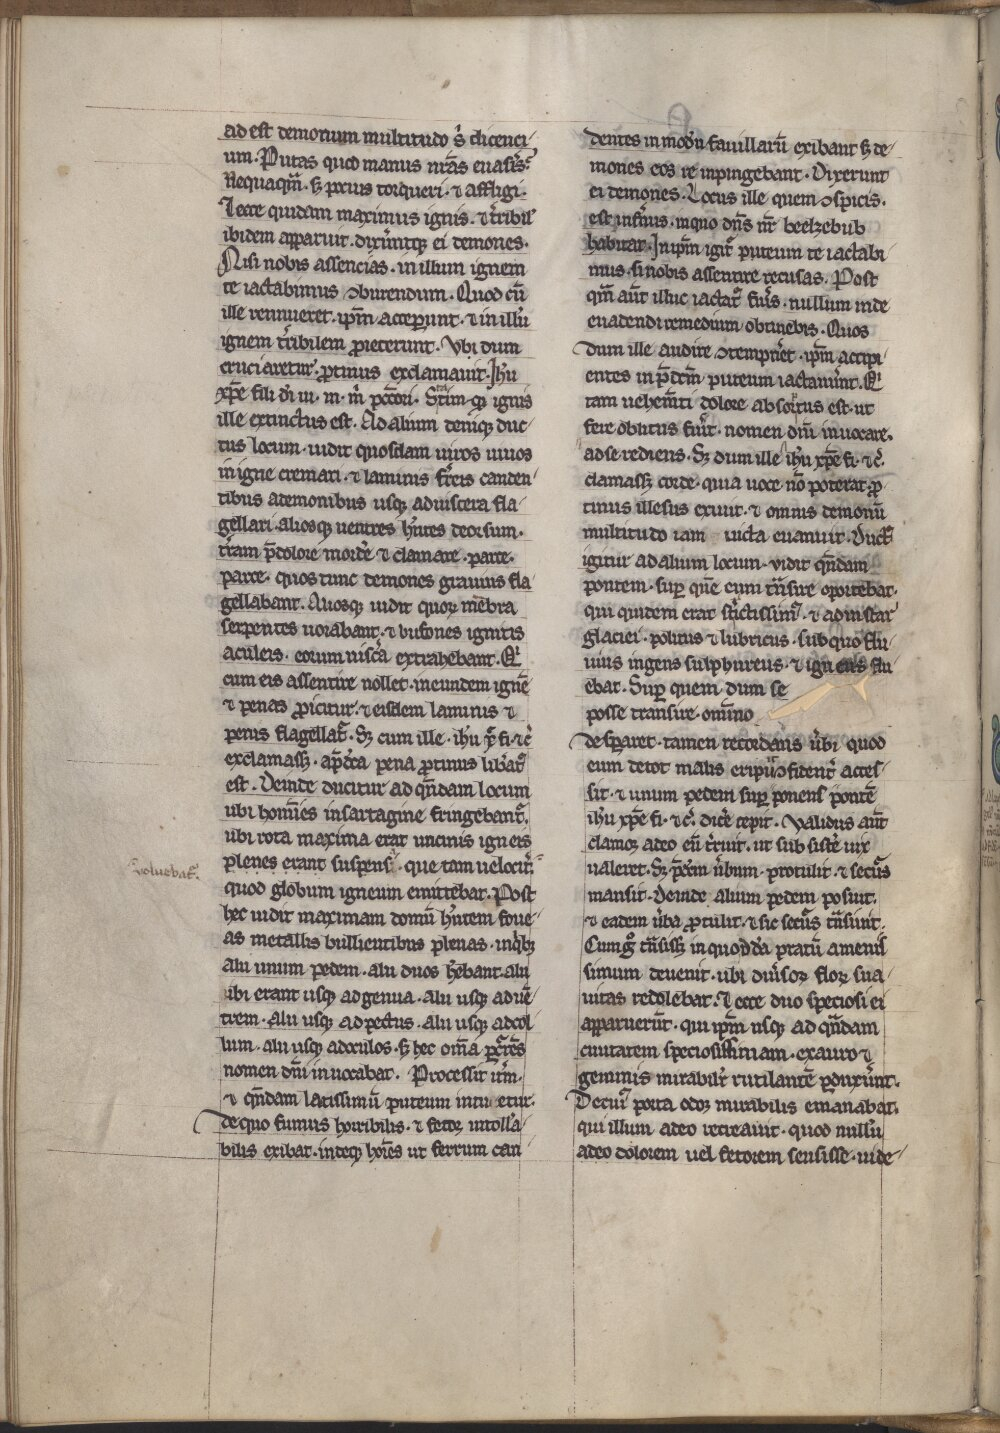 ad est demonum multitudo s̉ dicenci
um. Putas quod manus nr̄as euasis̉.
Nequaqm̄. sꝫ pocius torqueri. ⁊ affligi.
Et ecce quidam maximus ignis. ⁊ tr̉ribil̉
ibidem apparuit. dixer̄ntqꝫ ei demones.
Nisi nobis assencias. in illum ignem
te iactabimus ɔburendum. Quod cū
ille rennueret. ip̄m acceperunt. ⁊ in illū
ignem tr̉ribilem ꝓiecerunt. Vbi dum
cruciaretur. ꝓtinus exclamauit. Ihu
xp̄e fili di̓ ui. m. m̉ pctōri. Statim qꝫ ignis
ille extinctus est. Ad alium deniqꝫ duc
tus locum. uidit quosdam uiros uiuos
in igne cremari. ⁊ laminis fr̉reis canden
tibus a demonibus usqꝫ ad uiscera fla
gellari. aliosqꝫ uentres hn̄tes deorsum.
tr̉ram p̄ dolore mordr̉e ⁊ clamare. parce.
parce. quos tunc demones grauius fla
gellabant. Aliosqꝫ uidit quoꝝ mēbra
serpentes uorabant. ⁊ bufones ignitis
aculeis. eorum uiscr̉a extrahebant. Et
cum eis assentire nollet. in eundem ignē
⁊ penas ꝓicitur. ⁊ eisdem laminis ⁊
penis flagellat̉. Sꝫ cum ille. ihu xp̄e fi. ⁊c̄
exclamassꝫ. a p̄dc̄a pena ꝓtinus libr̉at9
est. Deinde ducitur ad qn̄dam locum
ubi homines in sartagine fringebant̉.
ubi rota maxima erat uncinis igneis
plenes erant suspensi. que tam uelocit̉
voluebat̉.
quod globum igneum emittebat. Post
hec uidit maximam domū hn̄tem foue
as metallis bullientibus plenas. in qibꝫ
alii unum pedem. alii duos hēbant. alii
ibi erant usqꝫ ad genua. alii usqꝫ ad uē
trem. alii usqꝫ ad pectus. alii usqꝫ ad col
lum. alii usqꝫ ad oculos. sꝫ hec om̄a
nomen dn̄i inuocabat. Processit it̉m.
⁊ qn̄dam latissimū puteum intuetur.
de quo fumus horribilis. ⁊ fetor intoll̉a
bilis exibat. indeqꝫ hoīes ut ferrum can
dentes in modū fauillarū exibant sꝫ de
mones eos re inpingebant. Dixerunt
ei demones. Locus ille quem ɔspicis.
est infr̉nus. in quo dn̄s nr̄ beelzebub
habitat. In ip̄m igit̉ puteum te iactabi
mus. si nobis assentire recusas. Post
qm̄ aut̄ illuc iactat9 fuis̉. nullum inde
euadendi remedium obtinebis. Quos
dum ille audire ɔtempnēt. ip̄m accipi
entes in p̄dc̄m puteum iactauer̄nt. Et
tam uehementi dolore absortus est. ut
fere oblitus fuer̄it. nomen dn̄i inuocare.
ad se rediens. Sꝫ dum ille ihu xp̄e fi. ⁊c̄.
clamassꝫ corde. quia uoce nō poterat. ꝓ
tinus illesus exiuit. ⁊ omnis demonū
multitudo iam uicta euanuit. Duct9
igitur ad alium locum. vidit qn̄dam
pontem. sup̄ quē eum tn̄sire oportebat.
qui quidem erat strictissim9. ⁊ ad instar
glaciei. politus ⁊ lubricus. sub quo flu
uius ingens sulphureus. ⁊ igneus flu
ebat. Sup̄ quem dum se
posse transire. omīno
desꝑaret. tamen recordans ūbi quod
eum de tot malis eripuit ɔfident̉ acces
sit. ⁊ unum pedem sup̄ ponens pontē
ihu xp̄e fi. ⁊c̄. dicr̉e cepit. Validus aut̄
clamor adeo eū tr̉ruit. ut subsistr̉e uix
ualeret. Sꝫ p̄dc̄m ūbum protulit. ⁊ secur̉9
mansit. Deinde alium pedem posuit.
⁊ eadem ūba ꝓtulit. ⁊ sic secur̉9 tn̄siuit.
Cumqꝫ tn̄sissꝫ in quoddā pratū amenis
simum deuenit. ubi diūsoꝝ floꝝ sua
uitas redolebat. Et ecce duo speciosi ei
apparuer̄nt. qui ip̄m usqꝫ ad qn̄dam
ciuitatem speciosissimam. ex auro ⁊
gemmis mirabilit̉ rutilantē ꝑduxer̄nt.
De cui9 porta odor mirabilis emanabat.
qui illum adeo recreauit. quod nullū
adeo dolorem uel fetorem sensisse. uide